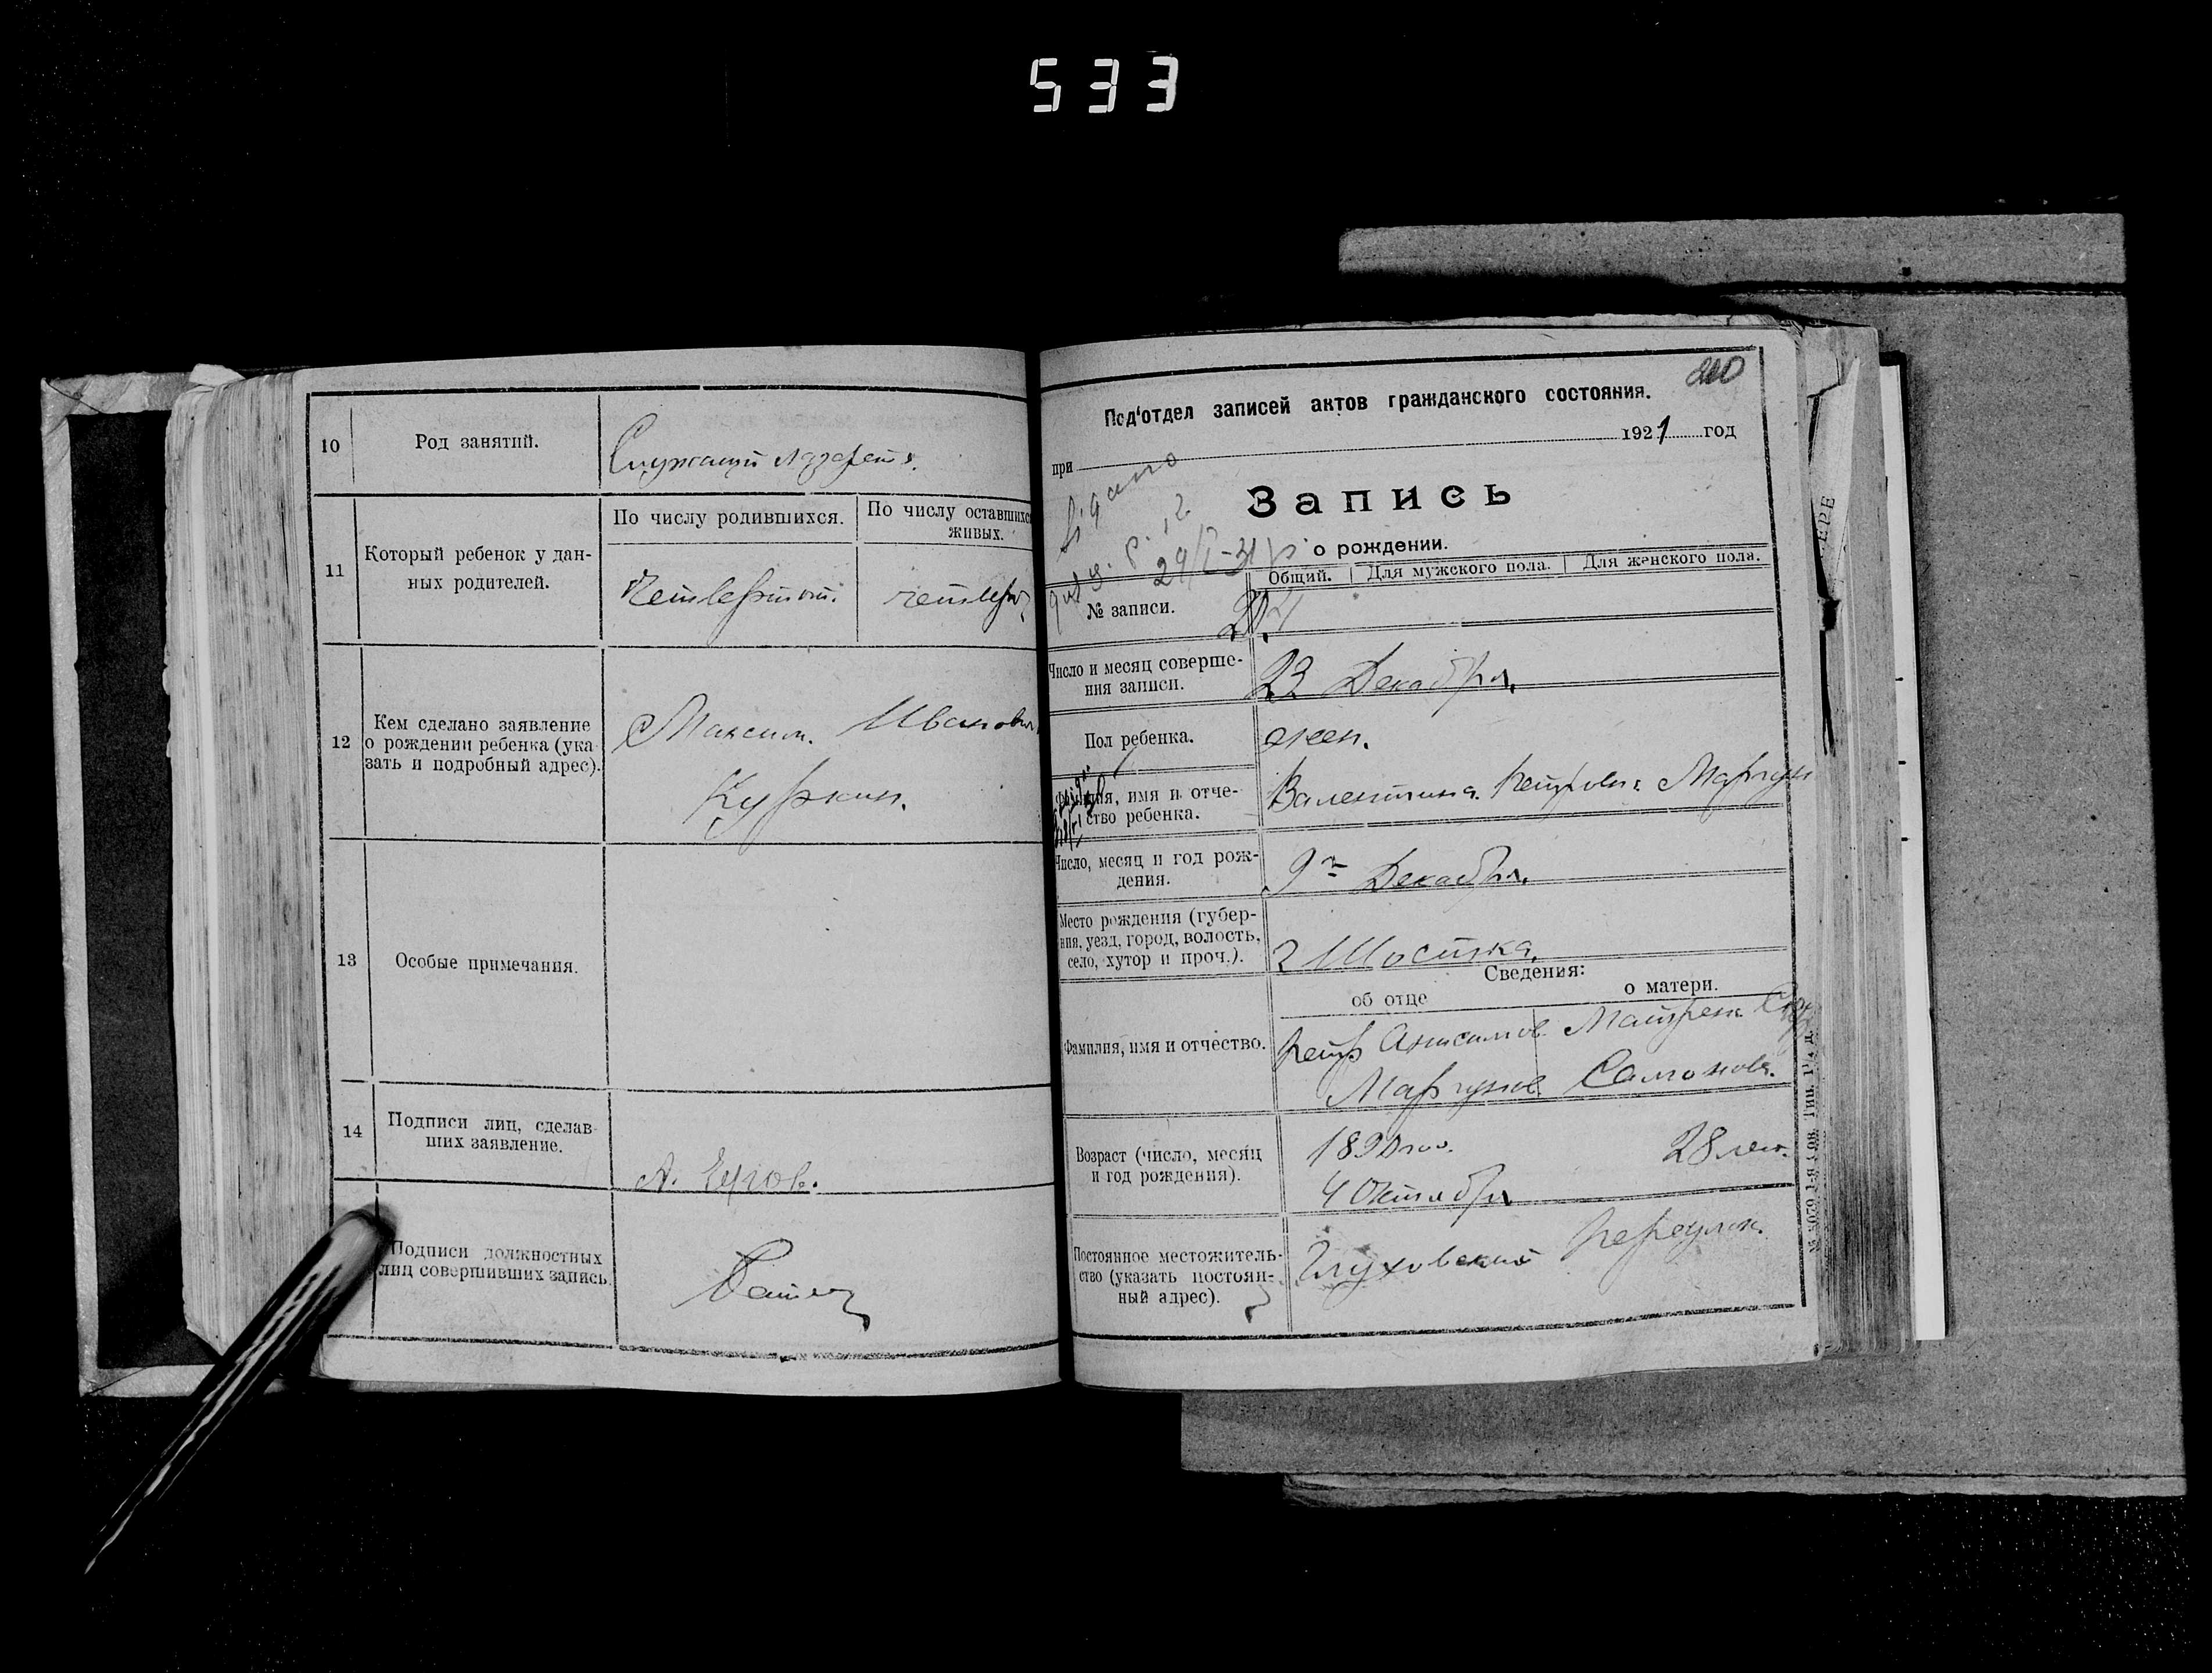 533
10
Род занятий.
Служащий лазарета.
11
Который ребенок у дан-
ных родителей.
По числу родившихся.
По числу оставшихс
живых.
Четвертый.
четверт
12
Кем сделано заявление
о рождении ребенка (ука
зать и подробный адрес).
Максим. Иванович
Куркин.
13
Особые примечания.
14
Подписи лиц, сделав-
ших заявление.
Подписи должностных
лиц совершивших запись.
210
Под'отдел записей актов гражданского состояния.
при
1921 год
Запись
о рождении.
29/I-31
Общий. Для мужского пола. Для женского пола.
№ записи.
Число и месяц соверше-
ния записи.
23 Декабря.
Пол ребенка.
жен.
Фамилия, имя и отче-
ство ребенка.
Валентина Петровна Маргун
Число, месяц и год рож-
дения.
9го Декабря.
Место рождения (губер-
ния, уезд, город, волость,
село, хутор и проч.).
г Шостка.
Сведения:
об отце
о матери.
Фамилия, имя и отчество.
Петр Анисимов
Маргунов
Матрена
Самонова.
Возраст (число, месяц
и год рождения).
1890 го.
4 Октября
28 лет.
Постоянное местожитель-
ство (указать постоян-
ный адрес).
Глуховский переулок.